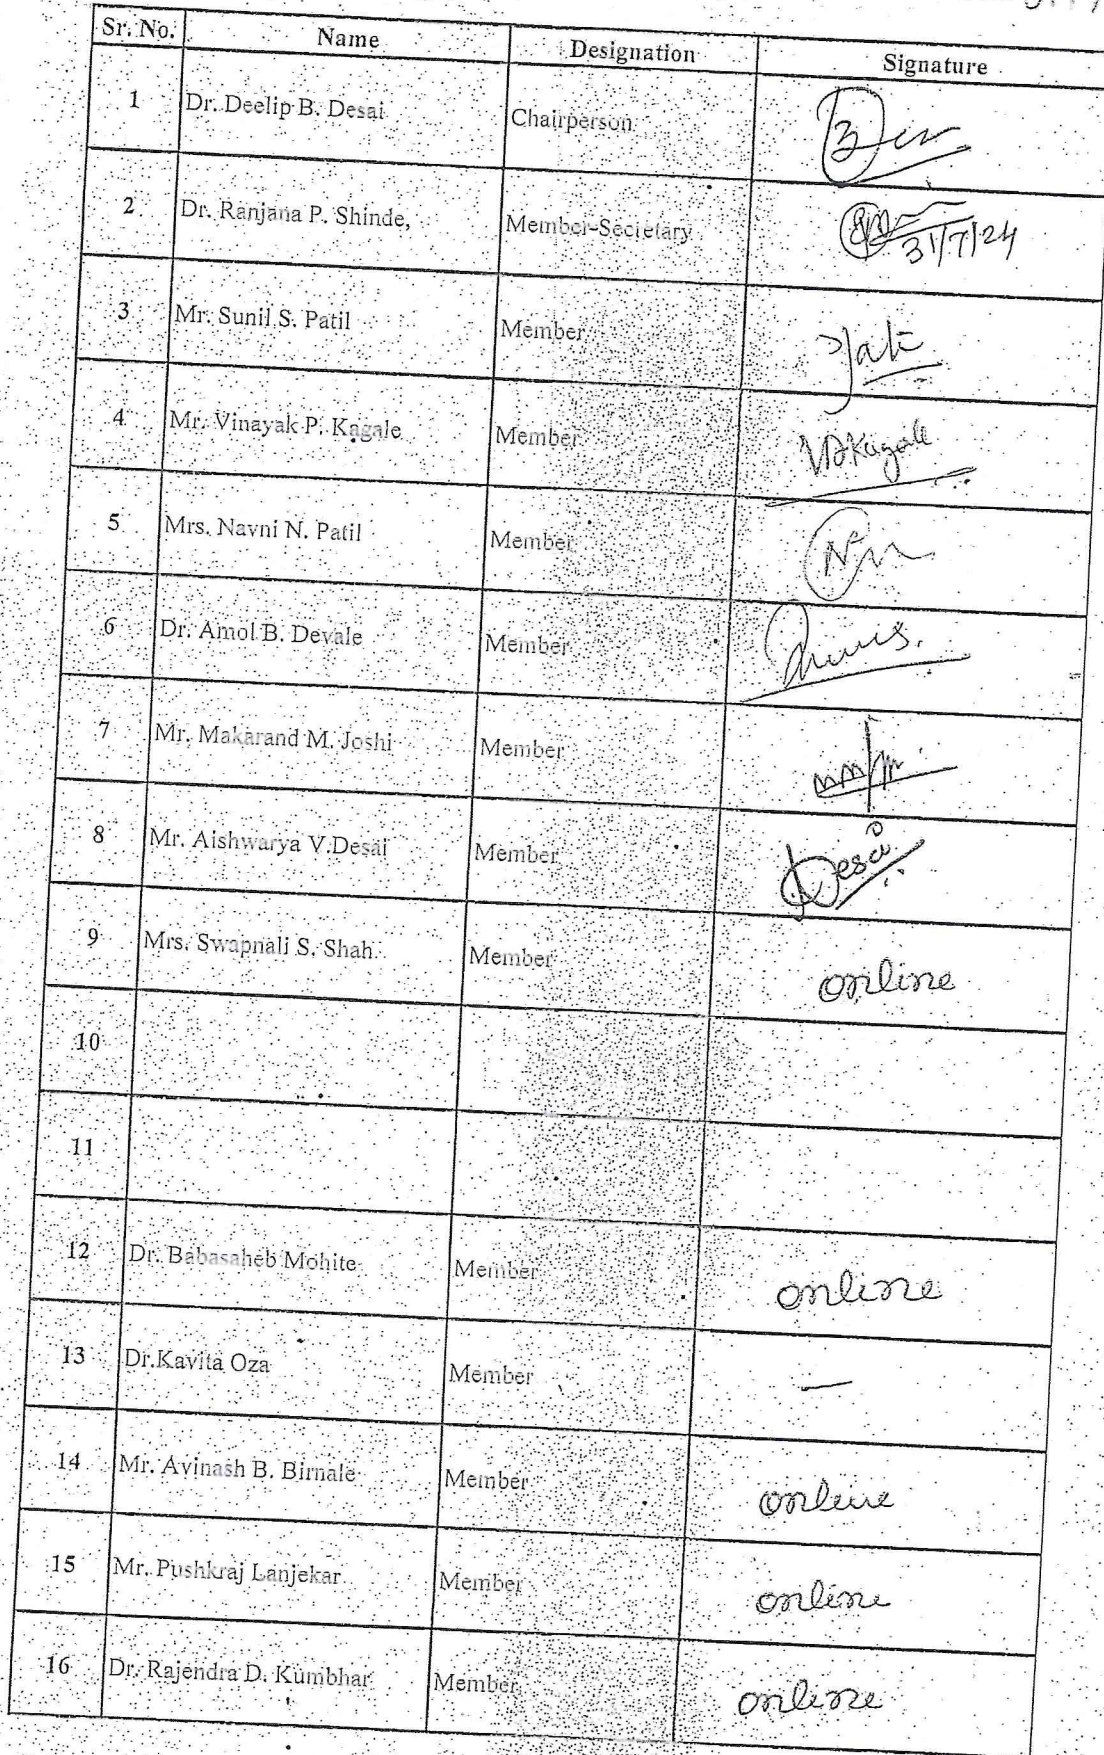 Sr. No. Name Designation Signature
1 Dr. Deelip B. Desai Chairperson
2 Dr. Ranjana P. Shinde, Member-Secretary 31/7/24
3 Mr. Sunil S. Patil Member
4 Mr. Vinayak P. Kagale Member VPKagale
5 Mrs. Navni N. Patil Member
6 Dr. Amol B. Devale Member
7 Mr. Makarand M. Joshi Member
8 Mr. Aishwarya V.Desai Member Desai
9 Mrs. Swapnali S. Shah Member online
10
11
12 Dr. Babasaheb Mohite Member online
13 Dr.Kavita Oza Member —
14 Mr. Avinash B. Birnale Member online
15 Mr. Pushkraj Lanjekar Member online
16 Dr. Rajendra D. Kumbhar Member online